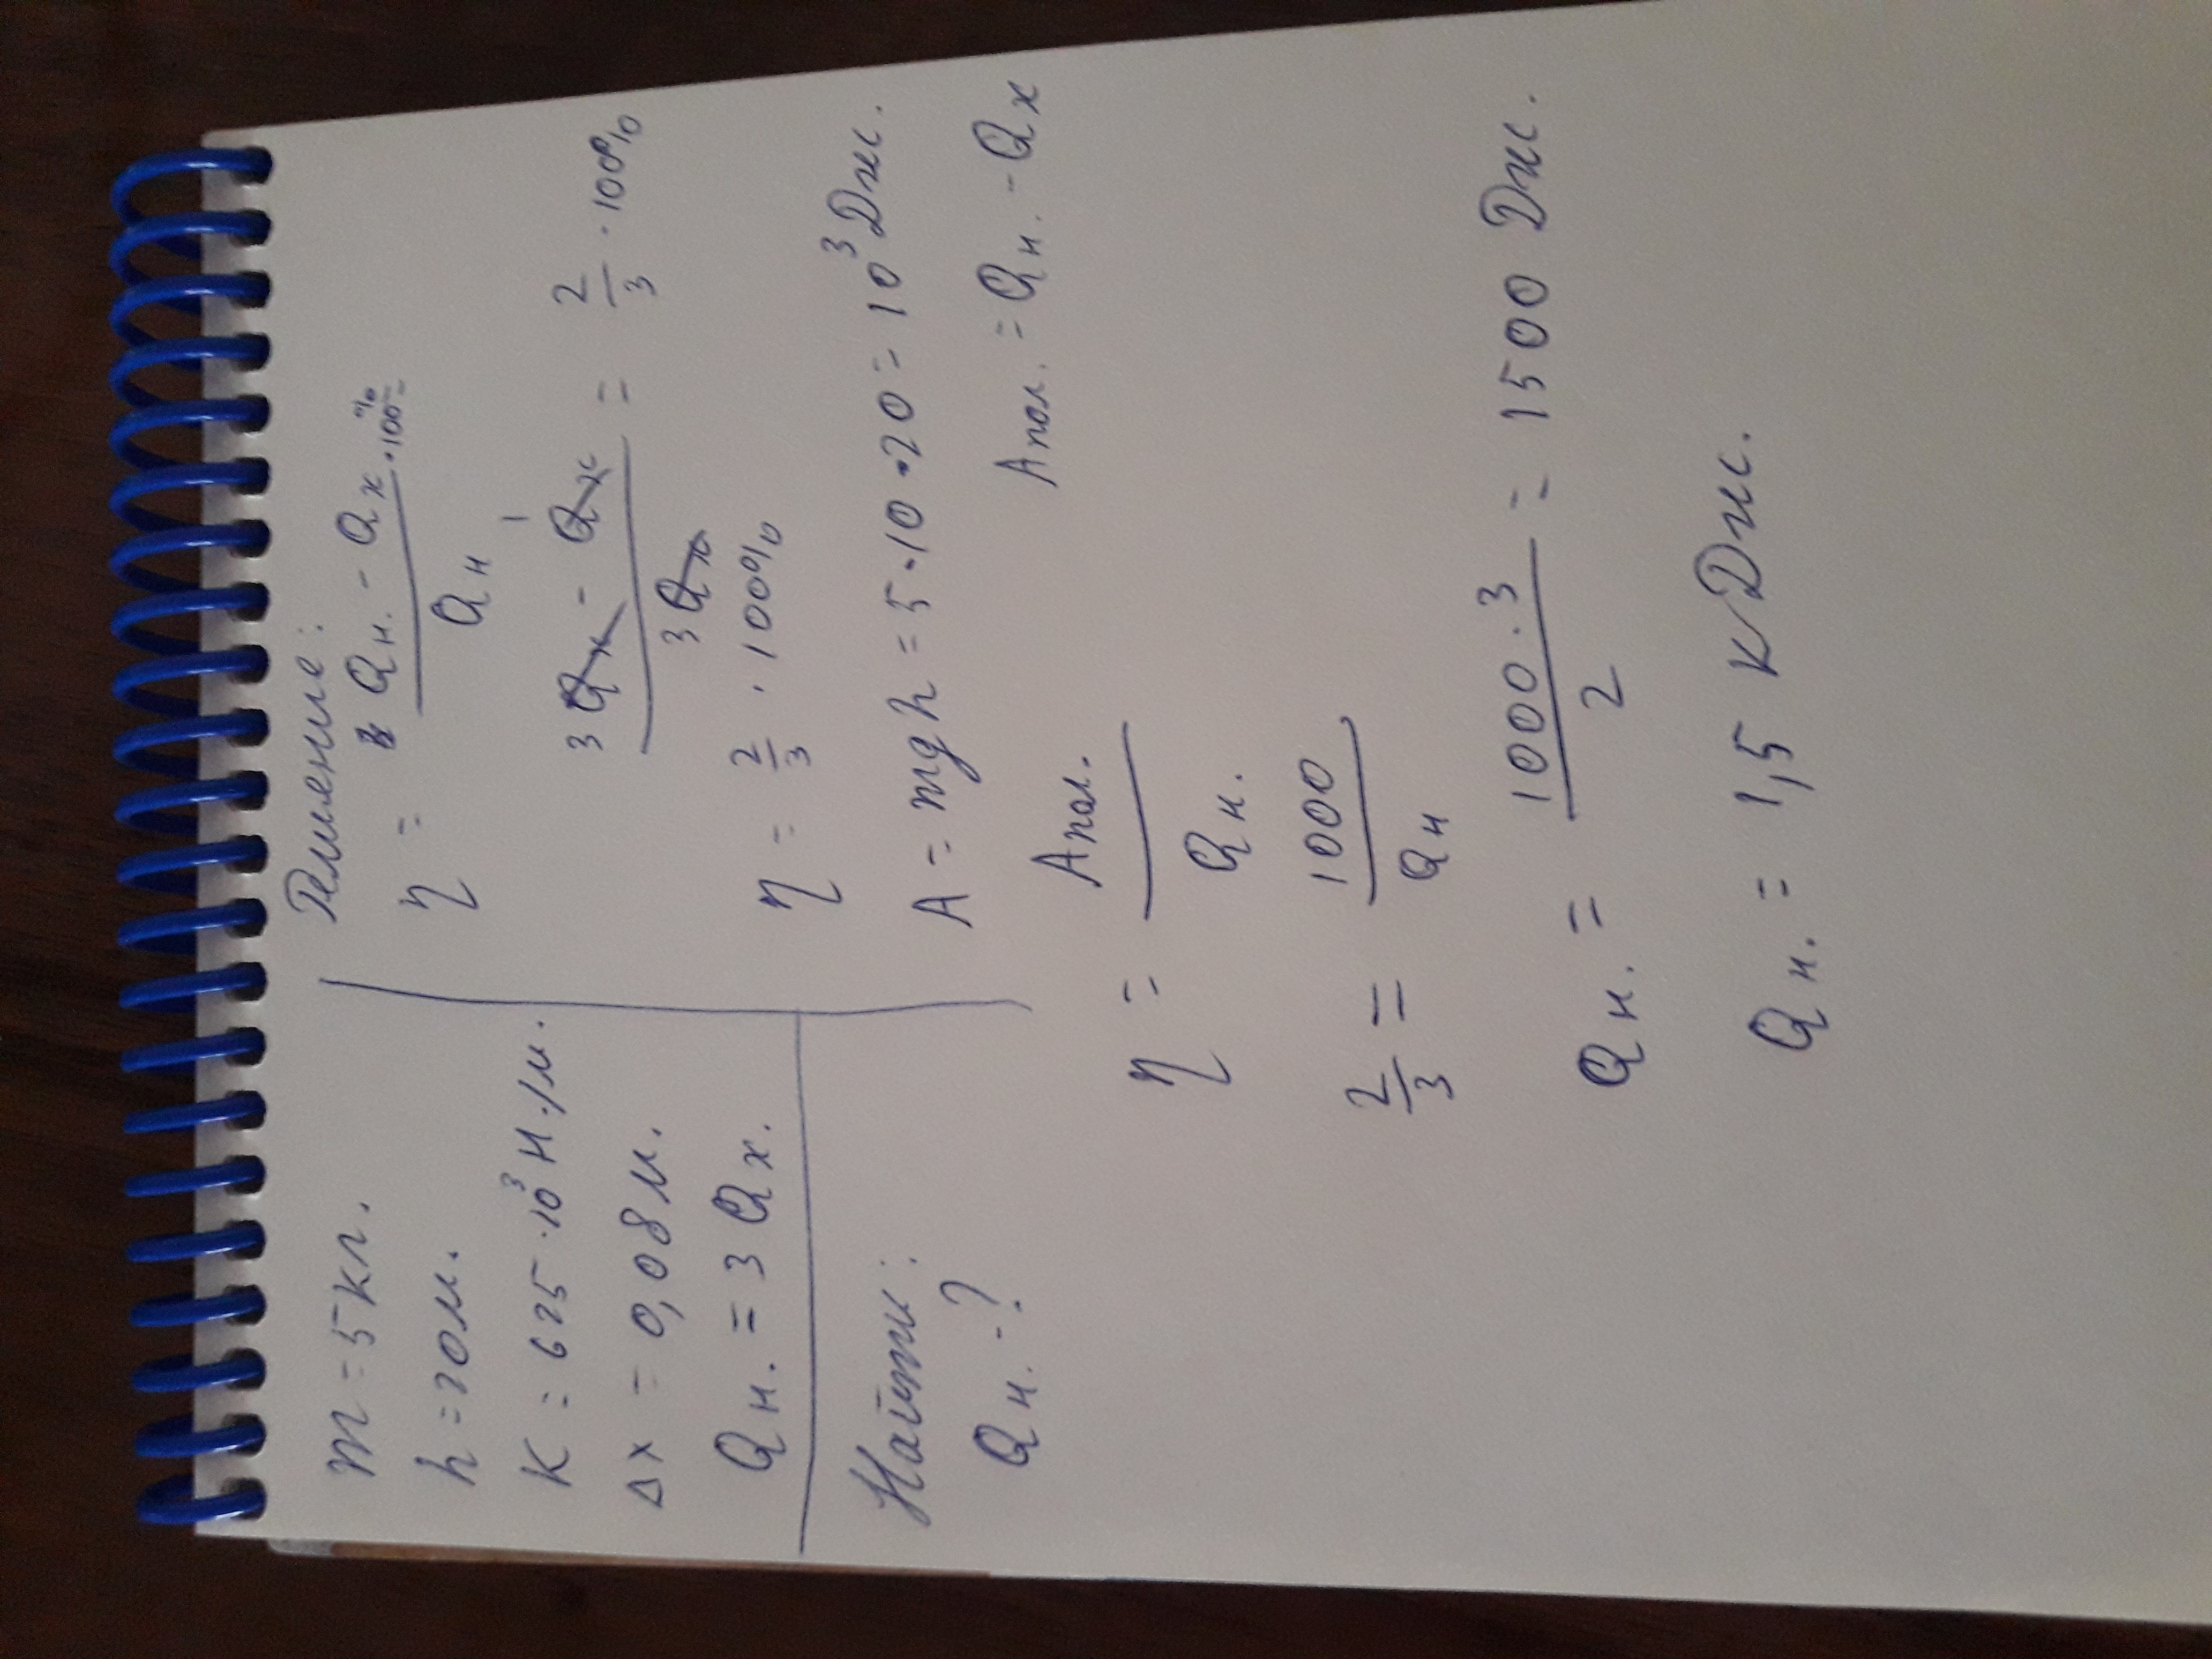 m = 5 кг.
h = 20 м.
K = 625 · 10³ Н·/м.
Δx = 0,08 м.
Qн. = 3 Qх.
Найти:
Qн. - ?
Решение:
η = Qн. - Qх / Qн · 100% =
3Qх - Qх 1 / 3Qх = 2/3 · 100%
η = 2/3 · 100%
A = mgh = 5 · 10 · 20 = 10³ Дж.
η = Aпол. / Qн. Aпол. = Qн. - Qх
2/3 = 1000 / Qн
Qн. = 1000 · 3 / 2 = 1500 Дж.
Qн. = 1,5 кДж.